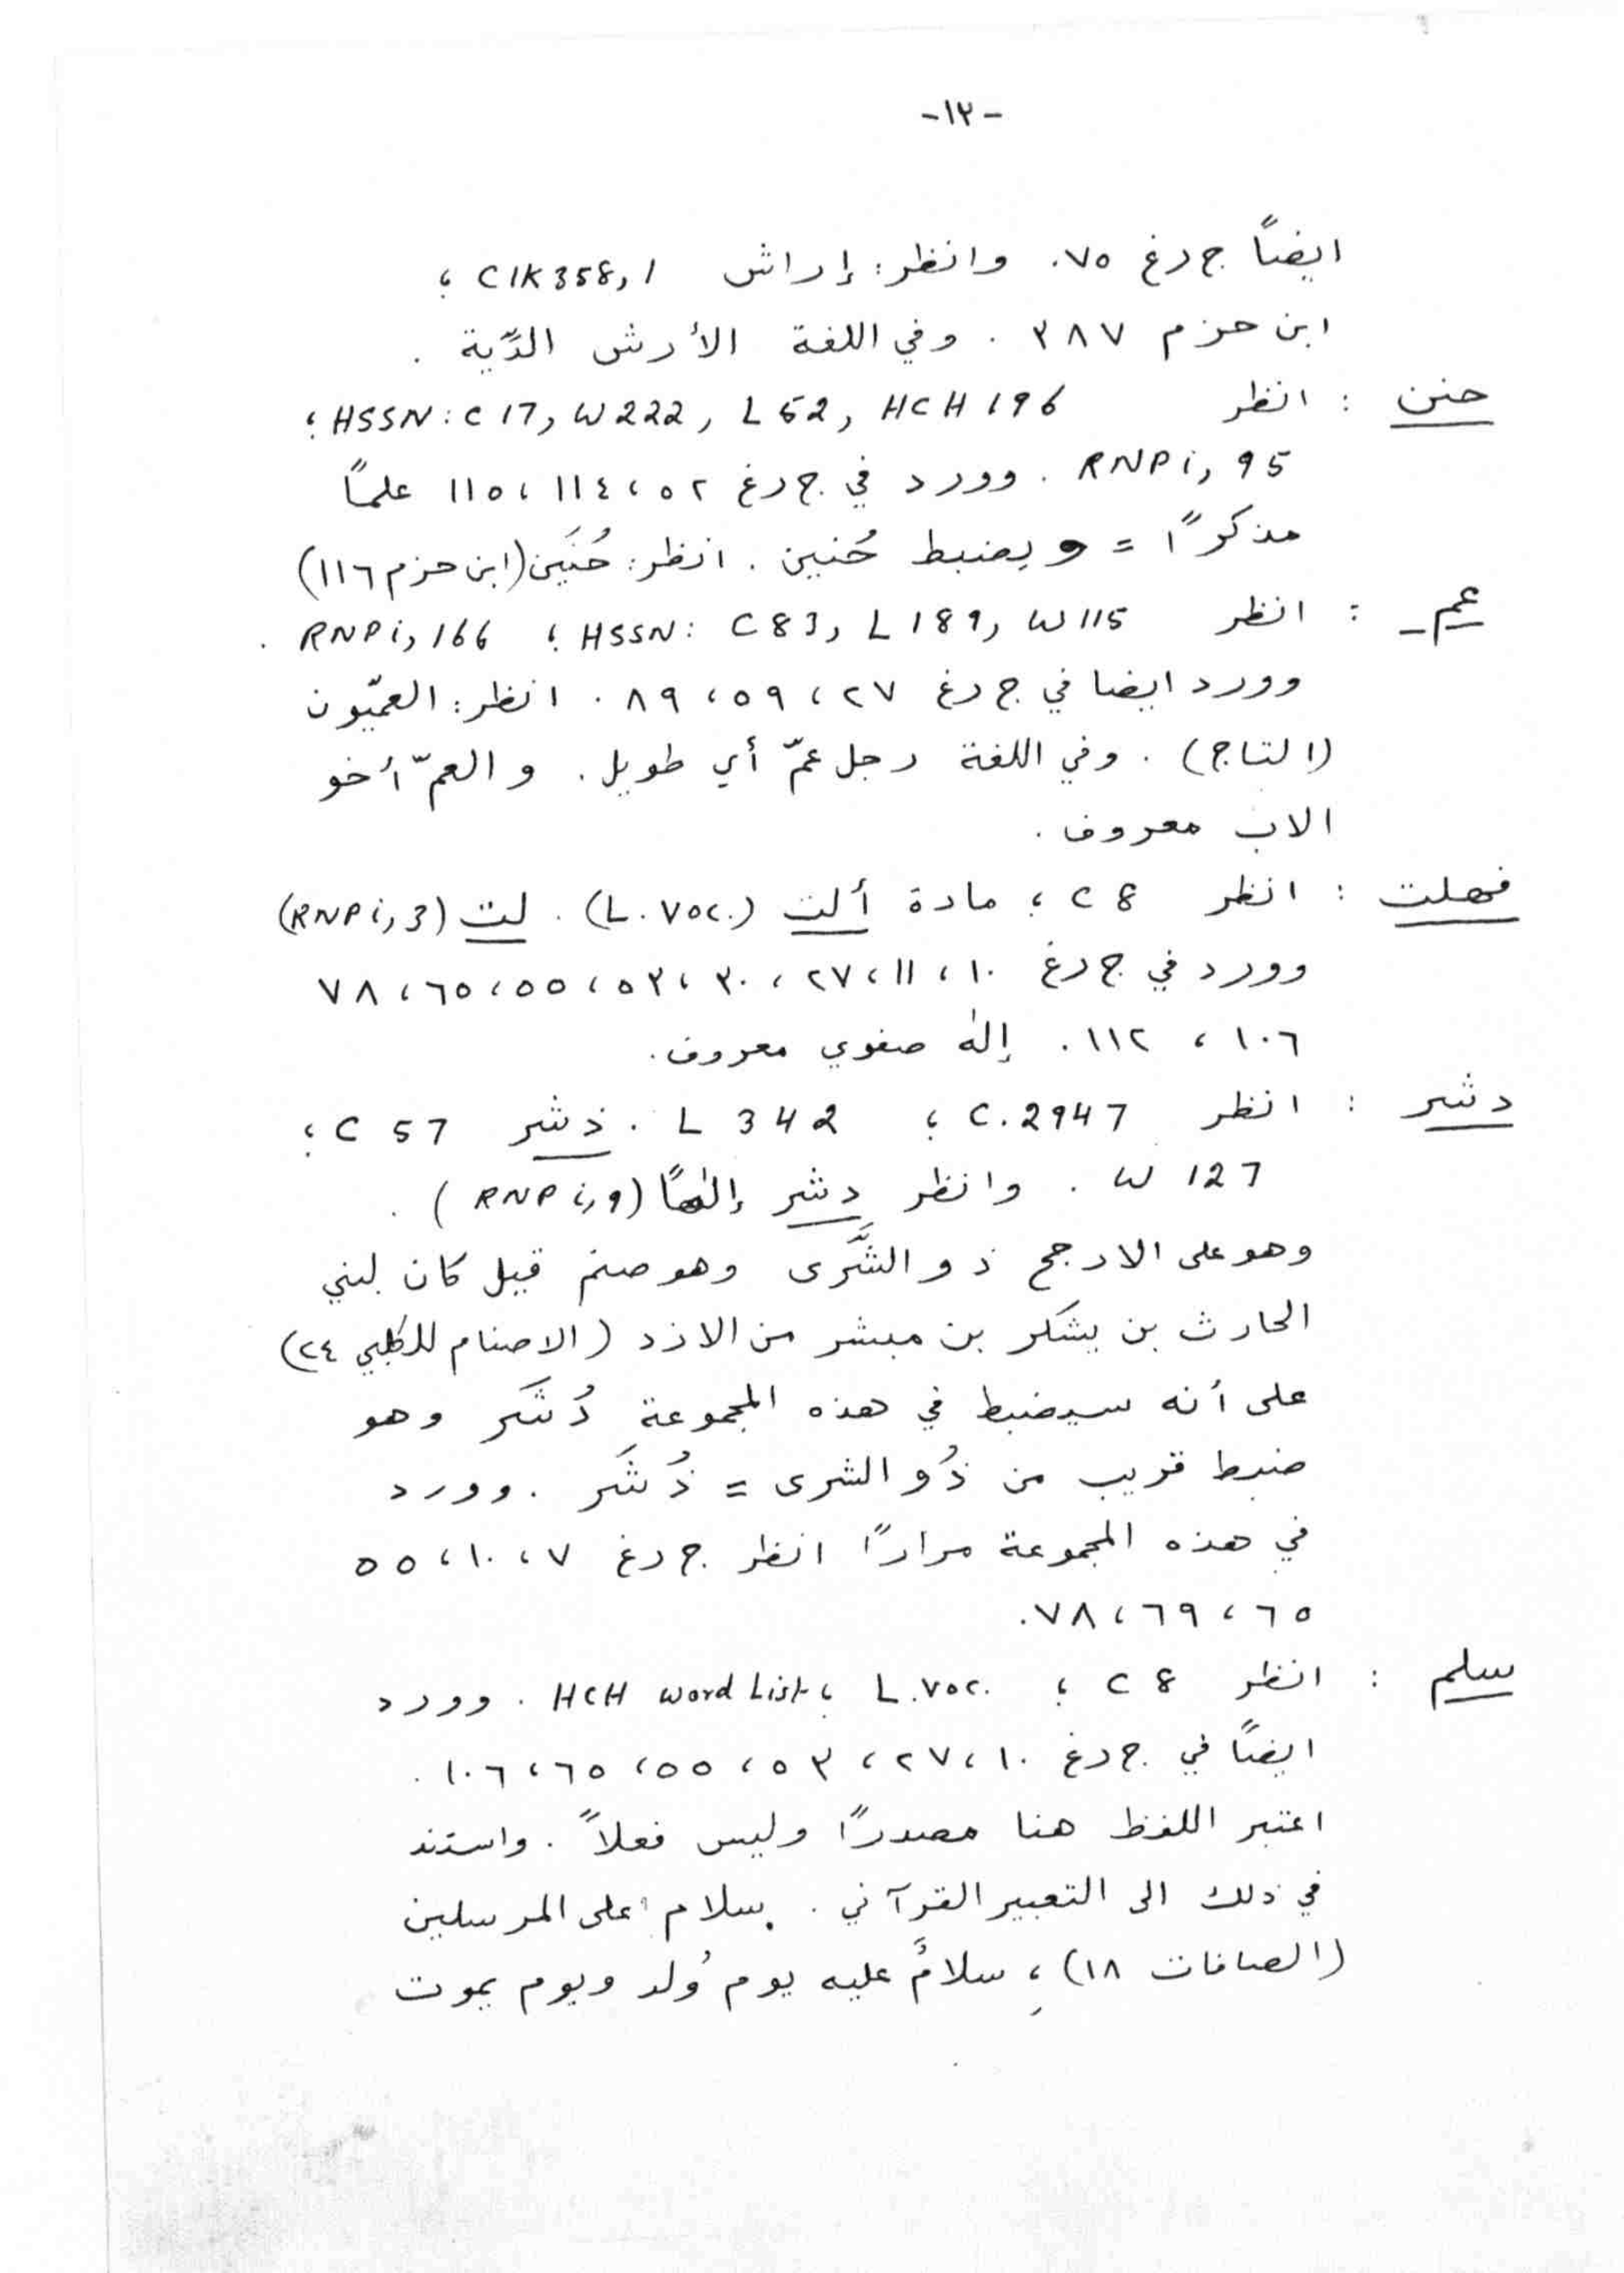 -١٣-
ايضًا ج دغ ٧٥. وانظر: إراش CIK 358,1 ؛
ابن حزم ٣٨٧ . وفي اللغة الأرش الدِّية .
حنن : انظر HSSN: C 17, W 222, L 52, HCH 196 ؛
RNP i, 95 . وورد في ج دغ ٥٢ ، ١١٤ ، ١١٥ علمًا
مذكرًا = ويضبط حُنين . انظر: حُنَين (ابن حزم ١١٦)
عم : انظر HSSN: C 83, L 189, W 115 ؛ RNP i, 166 .
وورد ايضا في ج دغ ٢٧ ، ٥٩ ، ٨٩ . انظر: العمّيون
(التاج) . وفي اللغة رجل عمّ أي طويل . والعمّ أخو
الاب معروف .
فهلت : انظر C 8 ؛ مادة ألت (L. Voc.) . لت (RNP i, 3)
وورد في ج دغ ١٠ ، ١١ ، ٢٧ ، ٣٠ ، ٥٣ ، ٥٥ ، ٦٥ ، ٧٨
١٠٦ ، ١١٢ . إله صفوي معروف .
دشر : انظر C. 2947 ؛ L 342 . ذشر C 57 ؛
W 127 . وانظر دشر إلهًا (RNP i, 9) .
وهو على الارجح ذو الشَّرى وهو صنم قيل كان لبني
الحارث بن يشكر بن مبشر من الازد (الاصنام للكلبي ٢٤)
على أنه سيضبط في هذه المجموعة دُشَر وهو
ضبط قريب من ذُو الشرى = ذُشَر . وورد
في هذه المجموعة مرارًا انظر ج دغ ٧ ، ١٠ ، ٥٥
٦٥ ، ٦٩ ، ٧٨ .
سلم : انظر C 8 ؛ L. Voc. ؛ HCH Word List . وورد
ايضًا في ج دغ ١٠ ، ٢٧ ، ٥٣ ، ٥٥ ، ٦٥ ، ١٠٦ .
اعتبر اللفظ هنا مصدرًا وليس فعلاً . واستند
في ذلك الى التعبير القرآني . سلام على المرسلين
(الصافات ١٨) ، سلامٌ عليه يوم وُلد ويوم يموت